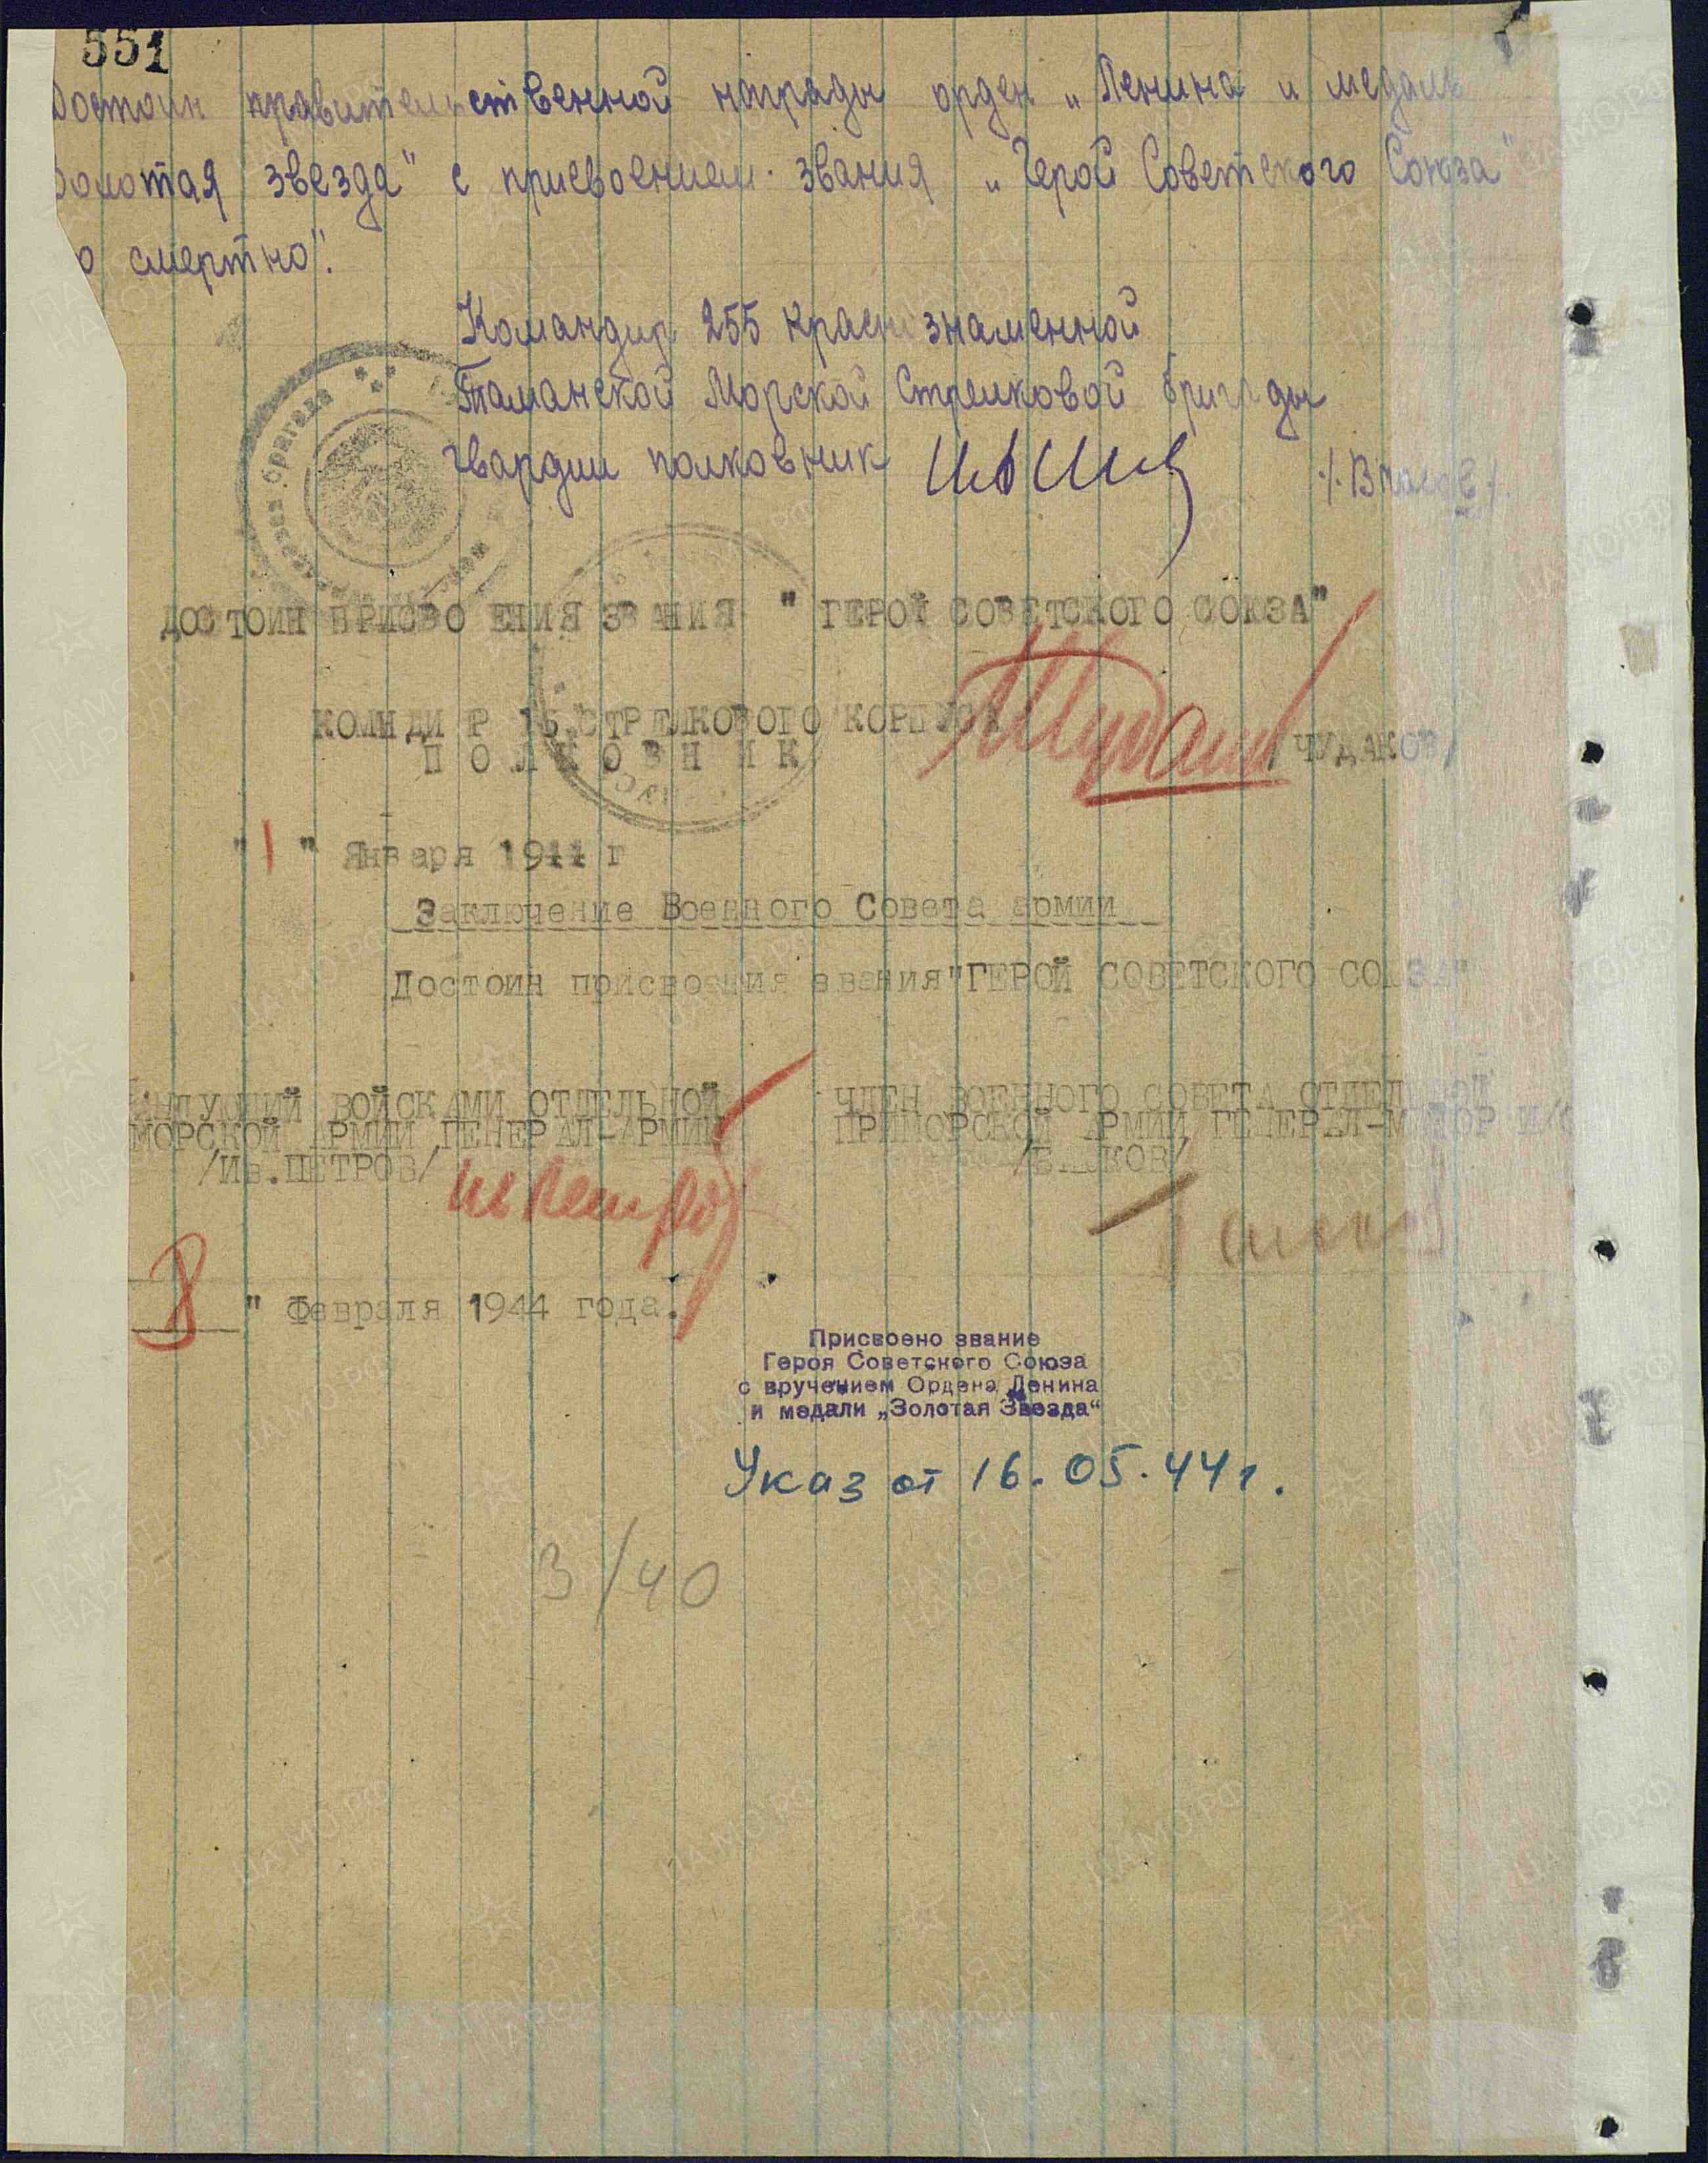 551
Достоин правительственной награды орден „Ленина и медаль
золотая звезда" с присвоением звания „Герой Советского Союза"
по смертно".
Командир 255 краснознаменной
Таманской Морской Стрелковой бригады
гвардии полковник
/. Власов /.
бригада
ДОСТОИН ПРИСВО ЕНИЯ ЗВАНИЯ " ГЕРОЙ СОВЕТСКОГО СОЮЗА"
КОМНДИ Р 16 СТРЕЛКОВОГО КОРПУСА
П О Л К О В Н И К
/ЧУДАКОВ/
"1" Января 1944 г
Заключение Военного Совета армии
Достоин присвоения звания "ГЕРОЙ СОВЕТСКОГО СОЮЗА"
АНДУЮЩИЙ ВОЙСКАМИ ОТДЕЛЬНОЙ
МОРСКОЙ АРМИИ ГЕНЕРАЛ-АРМИИ
/Ив.ПЕТРОВ/
Ив Петров
ЧЛЕН ВОЕННОГО СОВЕТА ОТДЕЛЬНОЙ
ПРИМОРСКОЙ АРМИИ ГЕНЕРАЛ-МАЙОР И/С
8 " Февраля 1944 года.
Присвоено звание
Героя Советского Союза
с вручением Ордена Ленина
и медали „Золотая Звезда"
Указ от 16.05.44г.
3/40
ПАМЯТЬ НАРОДА
ЦАМО.РФ